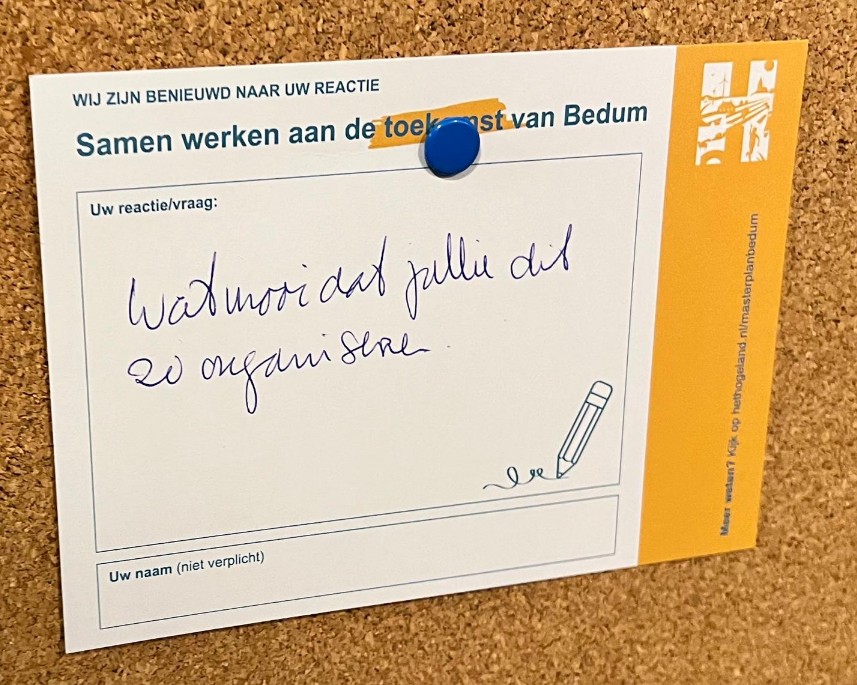 WIJ ZIJN BENIEUWD NAAR UW REACTIE
Samen werken aan de toekomst van Bedum
Uw reactie/vraag:
Wat mooi dat jullie dit
zo organiseren
Uw naam (niet verplicht)
Meer weten? Kijk op hethogeland.nl/masterplanbedum